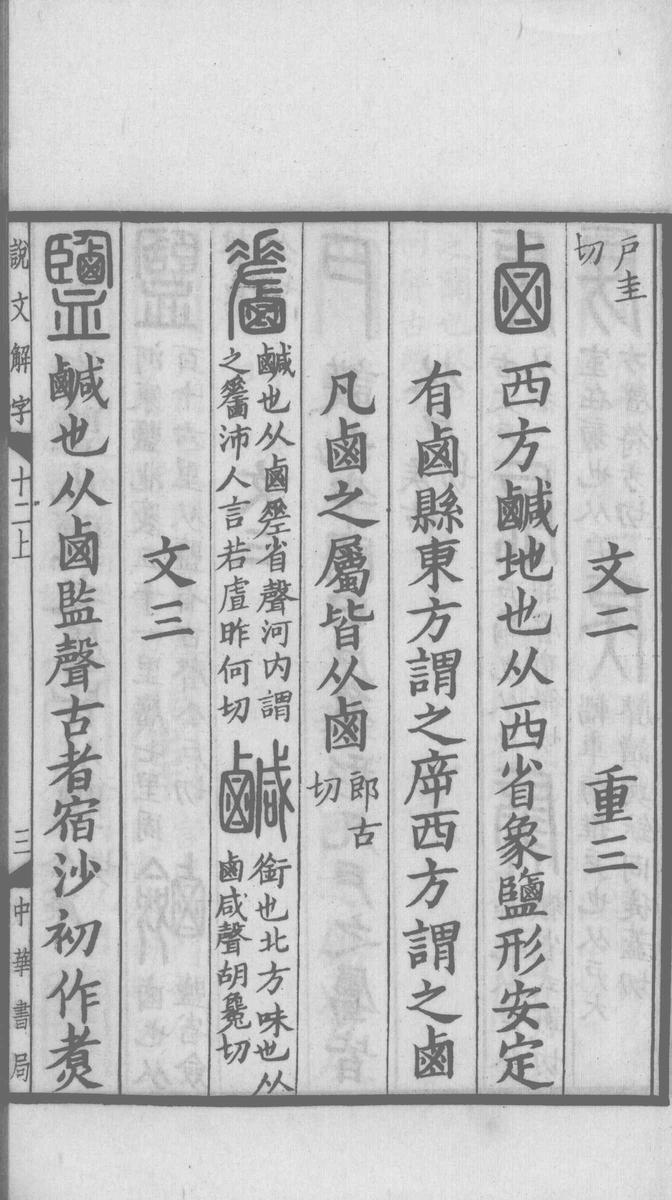 戶圭切
文二　重三
鹵 西方鹹地也从西省象鹽形安定
有鹵縣東方謂之㡿西方謂之鹵
凡鹵之屬皆从鹵郎古切
鹹也从鹵差省聲河内謂
之䴡沛人言若虘昨何切
鹹 銜也北方味也从
鹵咸聲胡毚切
文三
鹽 鹹也从鹵監聲古者宿沙初作煑
說文解字 十二上 三 中華書局